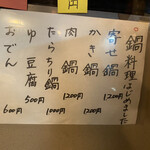 円
鍋料理はじめました
寄せ鍋 1200円
かき鍋 1200円
肉鍋 1200円
たらちり鍋 1000円
ゆ豆腐 500円
おでん 600円